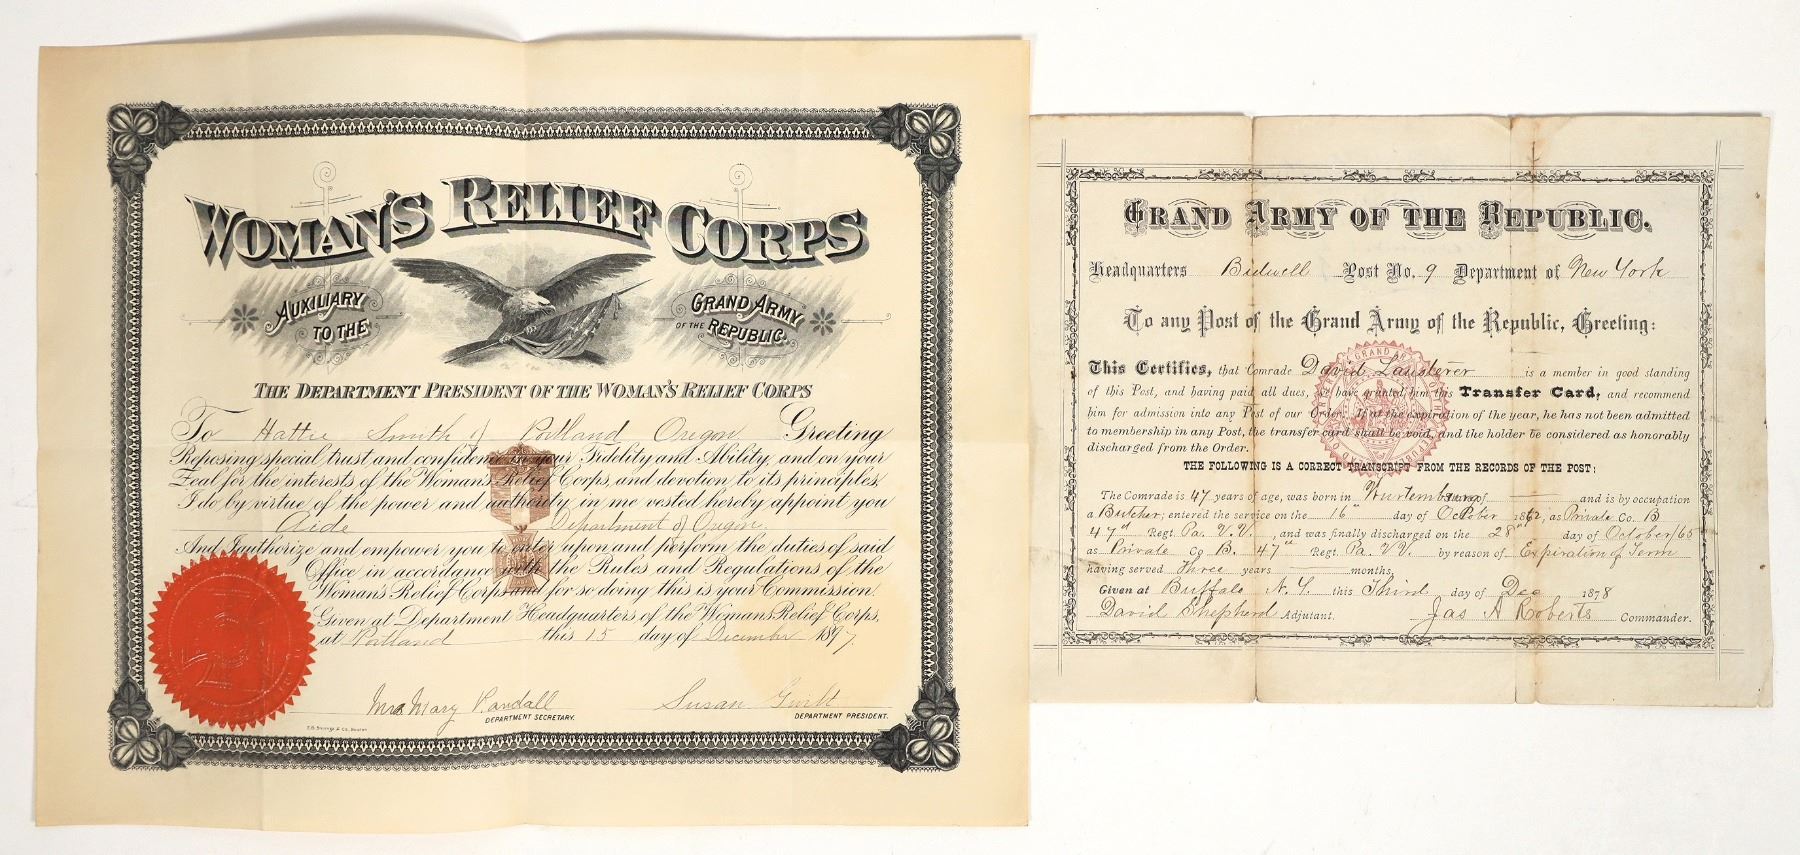 WOMAN'S RELIEF CORPS
AUXILIARY TO THE
GRAND ARMY OF THE REPUBLIC.
THE DEPARTMENT PRESIDENT OF THE WOMAN'S RELIEF CORPS
To Hattie Smith of Portland Oregon Greeting
Reposing special trust and confidence in your Fidelity and Ability, and on your
Zeal for the interests of the Woman's Relief Corps, and devotion to its principles,
I do, by virtue of the power and authority in me vested hereby appoint you
Aide Department of Oregon.
And I authorize and empower you to enter upon and perform the duties of said
Office in accordance with the Rules and Regulations of the
Woman's Relief Corps and for so doing this is your Commission.
Given at Department Headquarters of the Woman's Relief Corps,
at Portland this 15 day of December 1897.
Mrs Mary Randall
DEPARTMENT SECRETARY.
Susan
DEPARTMENT PRESIDENT.
GRAND ARMY OF THE REPUBLIC.
Headquarters Bidwell Post No. 9 Department of New York
To any Post of the Grand Army of the Republic, Greeting:
This Certifies, that Comrade David Lausterer is a member in good standing
of this Post, and having paid all dues, we have granted him this Transfer Card, and recommend
him for admission into any Post of our Order. If at the expiration of the year, he has not been admitted
to membership in any Post, the transfer card shall be void, and the holder be considered as honorably
discharged from the Order.
THE FOLLOWING IS A CORRECT TRANSCRIPT FROM THE RECORDS OF THE POST:
The Comrade is 47 years of age, was born in Wurtemburg and is by occupation
a Butcher; entered the service on the 16" day of October 1862, as Private Co. B
47" Regt. Pa. V. V. , and was finally discharged on the 28" day of October/65
as Private Co B. 47" Regt. Pa. V V. by reason of Expiration of Term
having served Three years months,
Given at Buffalo N. Y. this Third day of Dec 1878
David Shepherd Adjutant. Jas A Roberts Commander.